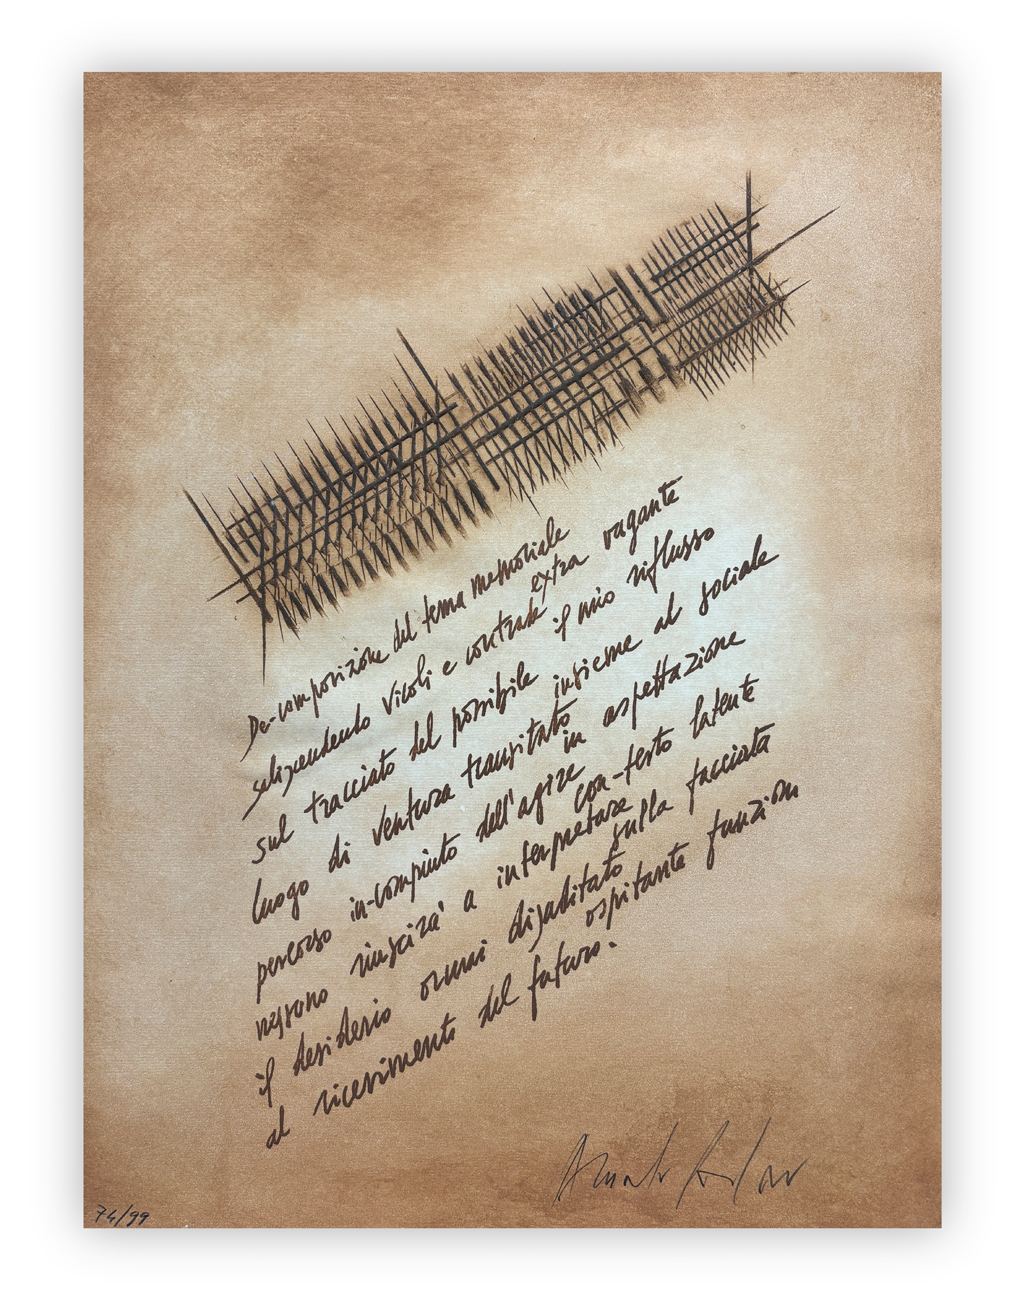 De-composizione del tema memoriale
selciendendo vicoli e contrade extra vagante
sul tracciato del possibile il mio riflusso
luogo di ventura transitato insieme al sociale
percorso in-compiuto dell'agire in aspettazione
nessuno riuscirà a interpretare con-testo latente
il desiderio ormai disabitato sulla facciata
al ricevimento del futuro. ospitante funzioni
74/99